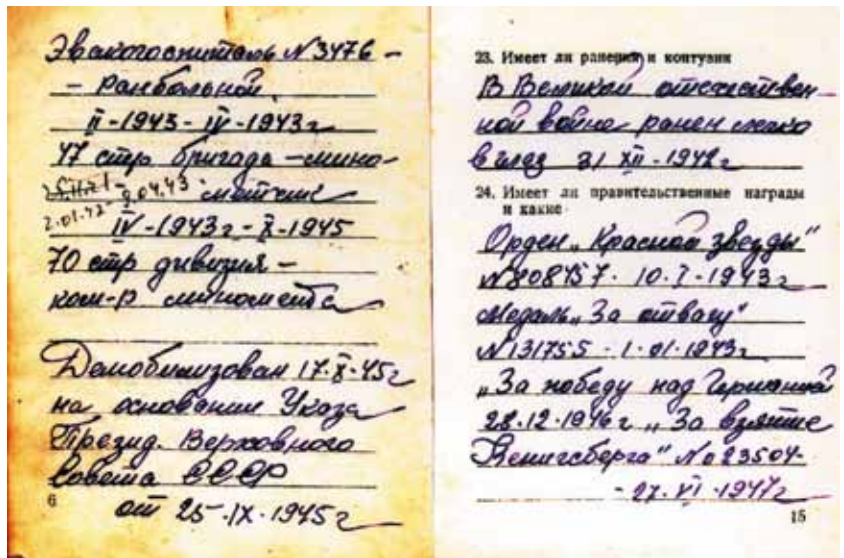 Эвакогоспиталь N 3476 –
– Ранбольной,
II-1943 - IV-1943г
47 стр бригада – мино-
2.01.42 - 9.04.43 метчик
IV-1943г - X-1945
70 стр дивизия –
ком-р миномета
Демобилизован 17.X.45г
на основании Указа
Презид. Верховного
Совета СССР
от 25.IX.1945г
6
23. Имеет ли ранения и контузии
В Великой отечествен
ной войне ранен легко
в глаз 31 XII-1942г
24. Имеет ли правительственные награды
и какие
Орден „Красной звезды"
N 808757. 10.I-1943г
Медаль „За отвагу"
N 131755 - 1-01-1943г
„За победу над Германией
28.12.1946г „За взятие
Кенигсберга" No 23504-
- 27.VI-1947г
15